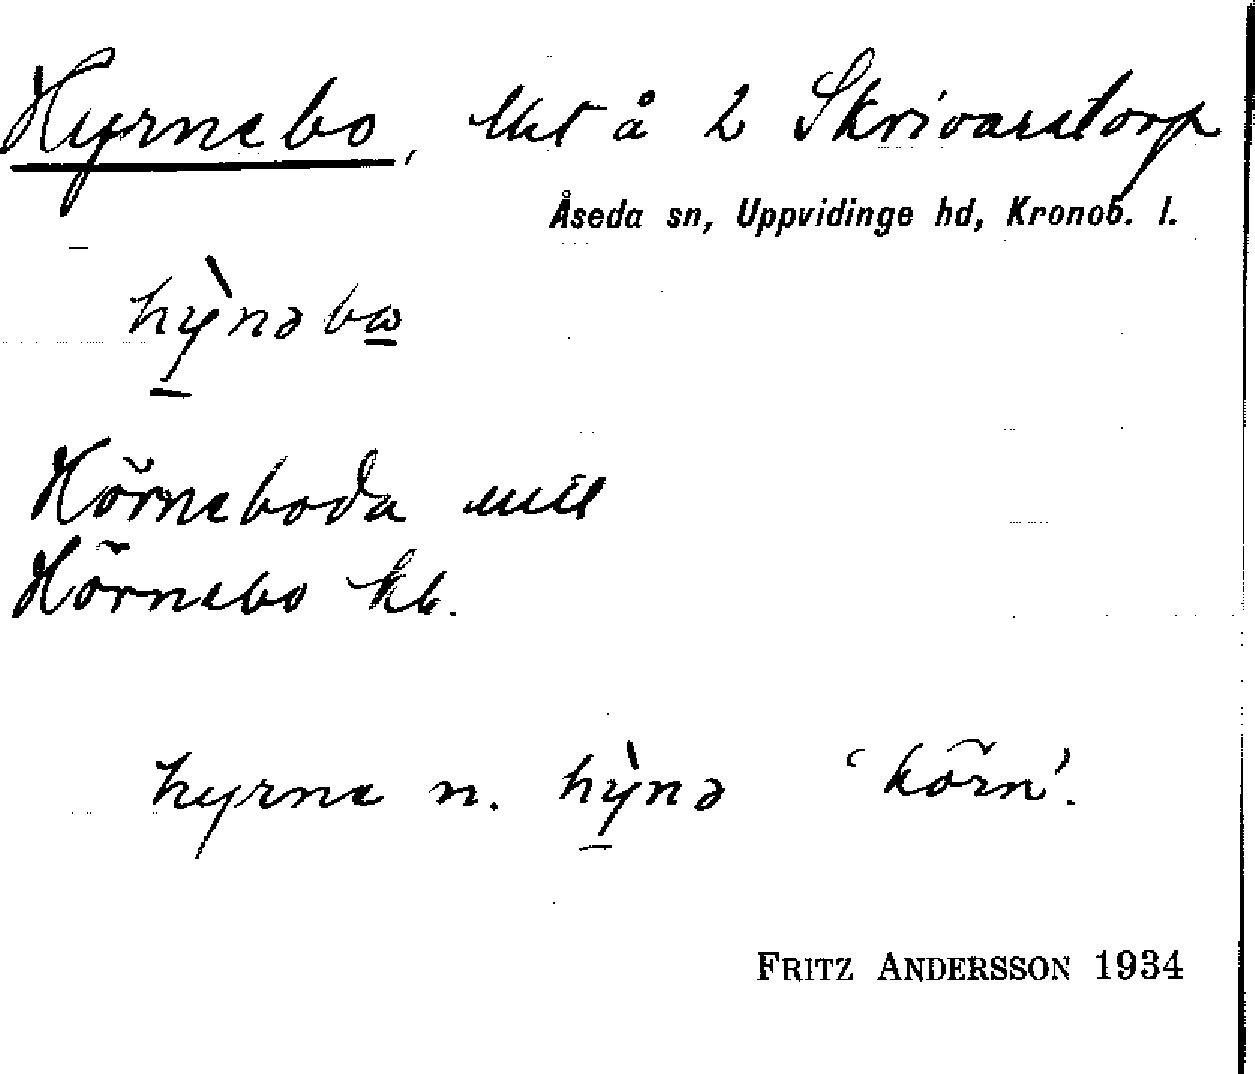 Hyrnebo, lht å 2 Skrivaretorp
Åseda sn, Uppvidinge hd, Kronob. l.
hỳnəbω
Hörneboda
Hörnebo kb.
hyrne n. hỳnə 'hörn'.
FRITZ ANDERSSON 1934